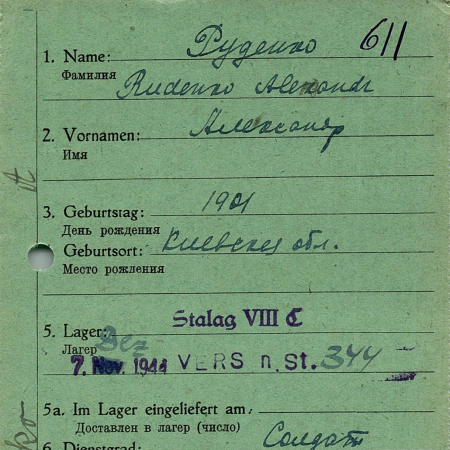 611
1. Name: Руденко
Фамилия
Rudenko Alexandr
2. Vornamen: Александр
Имя
3. Geburtstag: 1901
День рождения
Geburtsort: Киевская обл.
Место рождения
5. Lager: Stalag VIII C
Лагер
7. Nov. 1944 VERS n. St. 344
5a. Im Lager eingeliefert am
Доставлен в лагер (число)
6. Dienstgrad: Солдат